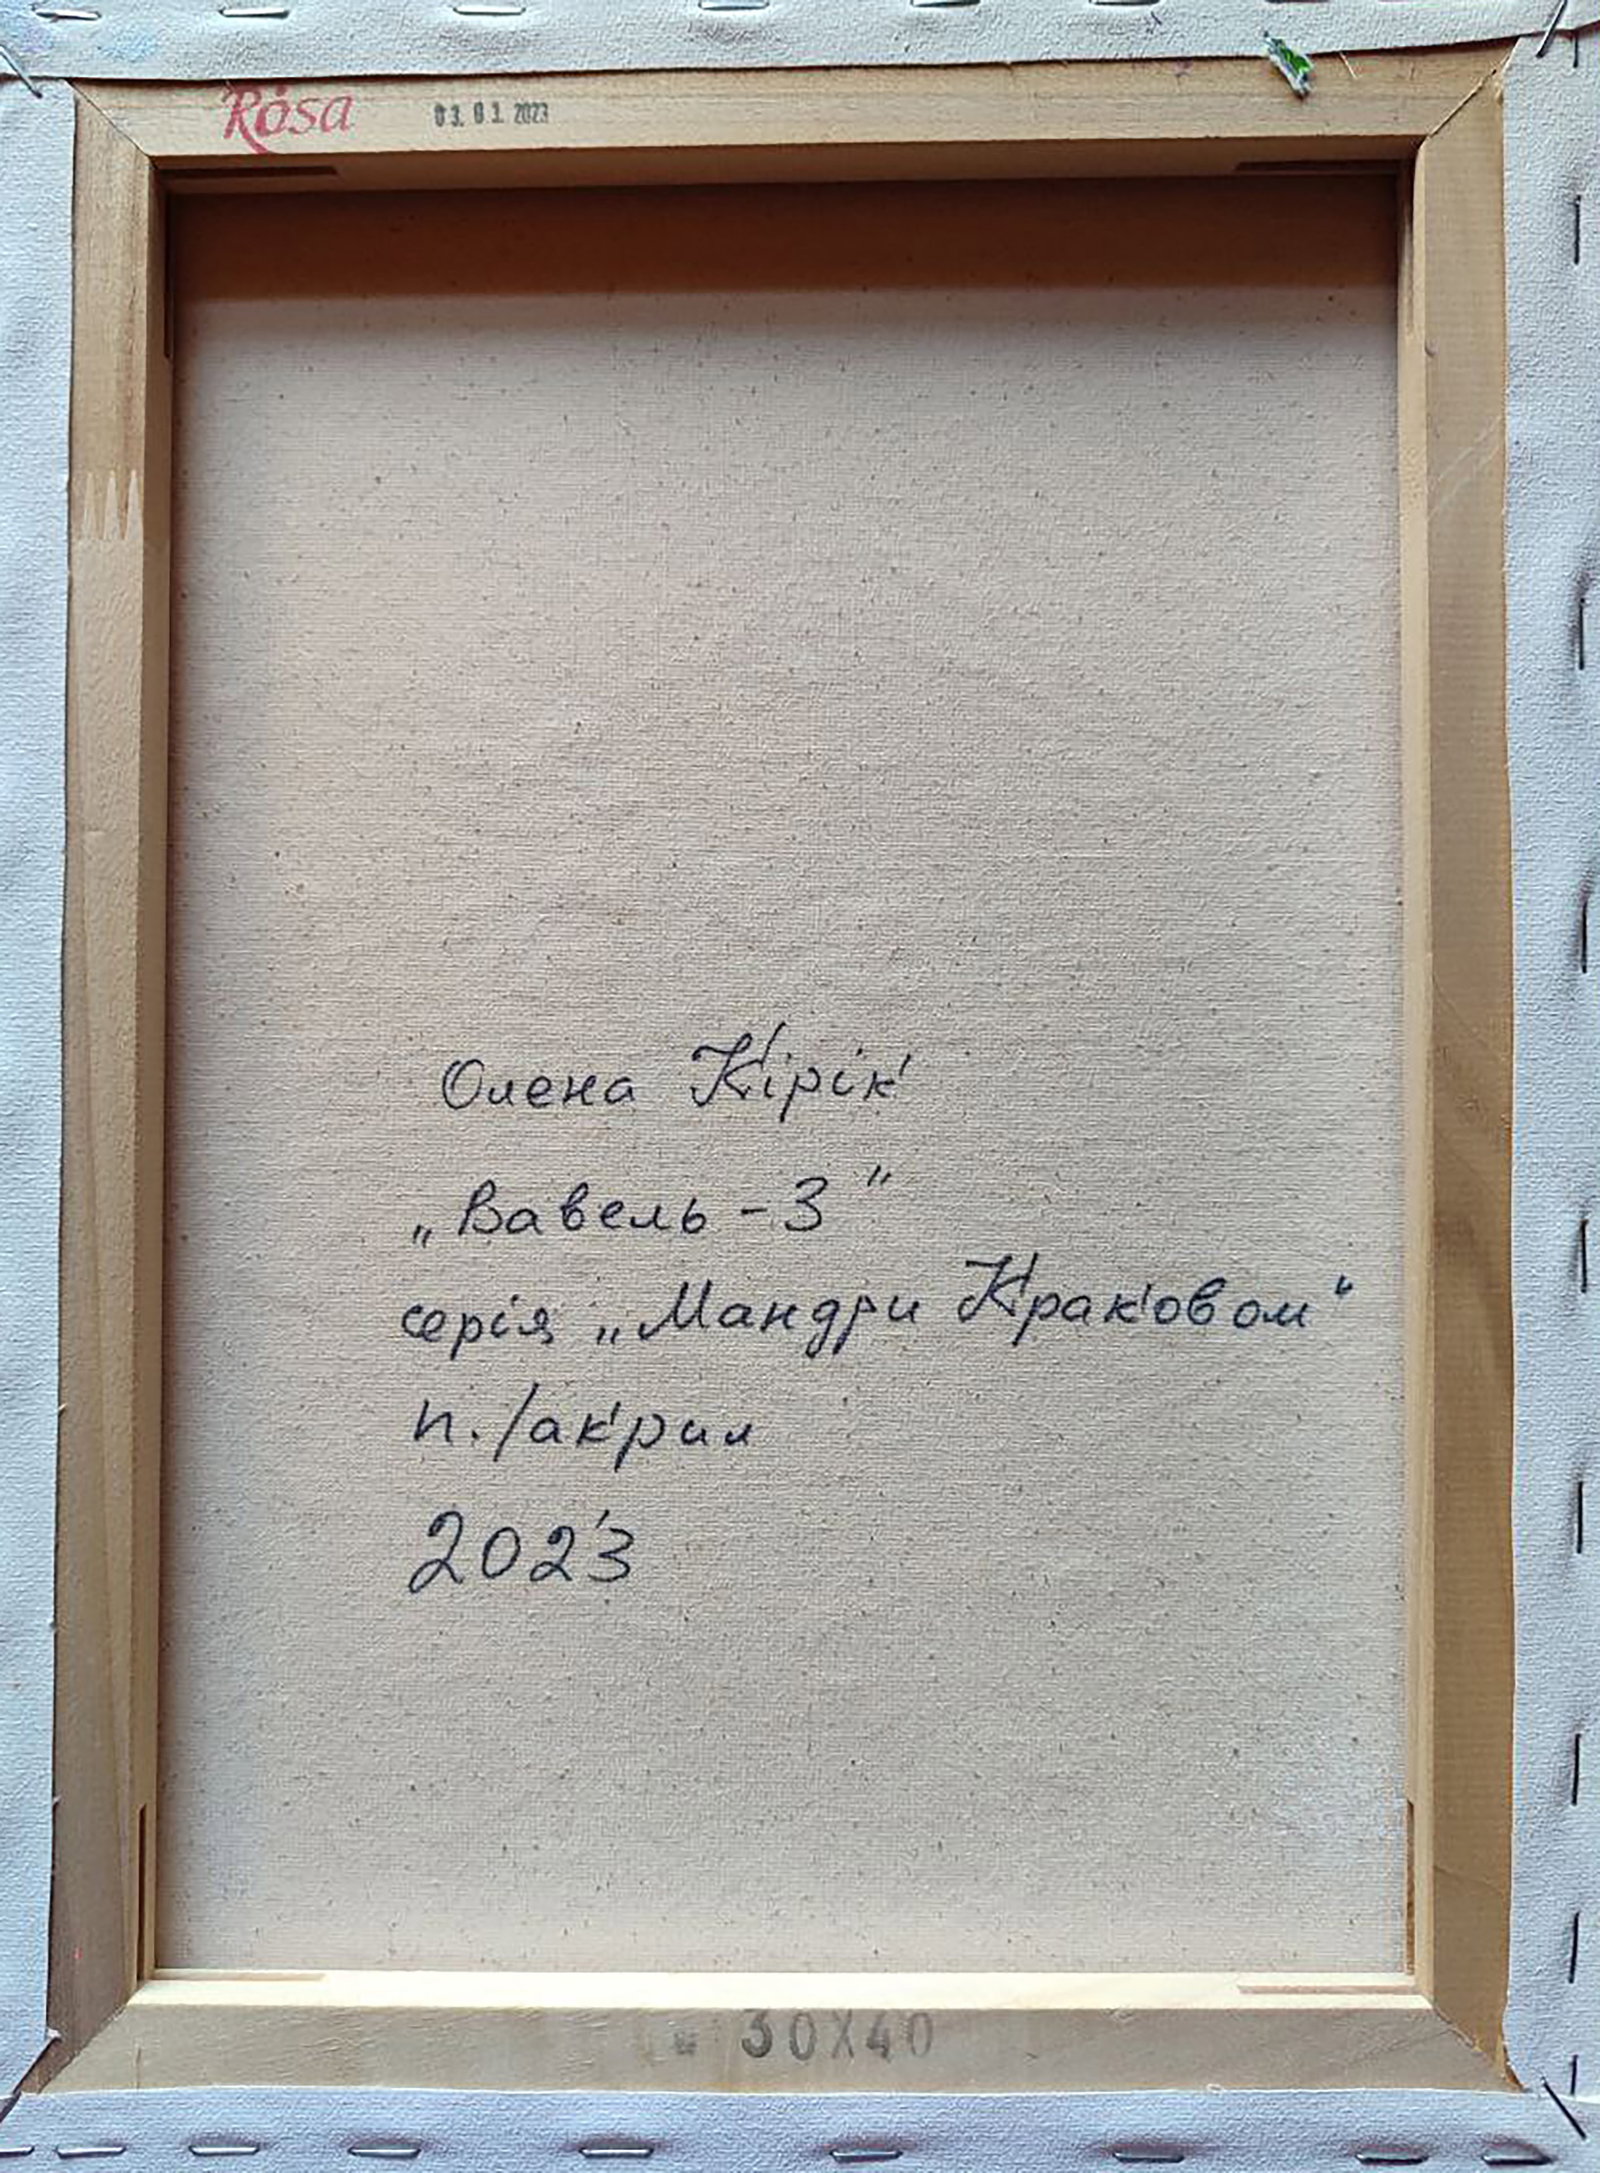 Rosa 03.01.2023
Олена Кірік
„Вавель-3"
серія „Мандри Краковом"
п./акрил
2023
30X40